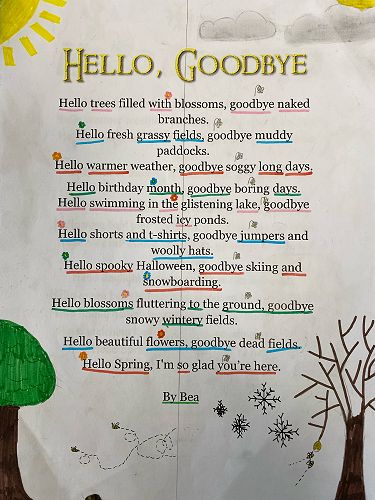 HELLO, GOODBYE
Hello trees filled with blossoms, goodbye naked
branches.
Hello fresh grassy fields, goodbye muddy
paddocks.
Hello warmer weather, goodbye soggy long days.
Hello birthday month, goodbye boring days.
Hello swimming in the glistening lake, goodbye
frosted icy ponds.
Hello shorts and t-shirts, goodbye jumpers and
woolly hats.
Hello spooky Halloween, goodbye skiing and
snowboarding.
Hello blossoms fluttering to the ground, goodbye
snowy wintery fields.
Hello beautiful flowers, goodbye dead fields.
Hello Spring, I'm so glad you're here.
By Bea